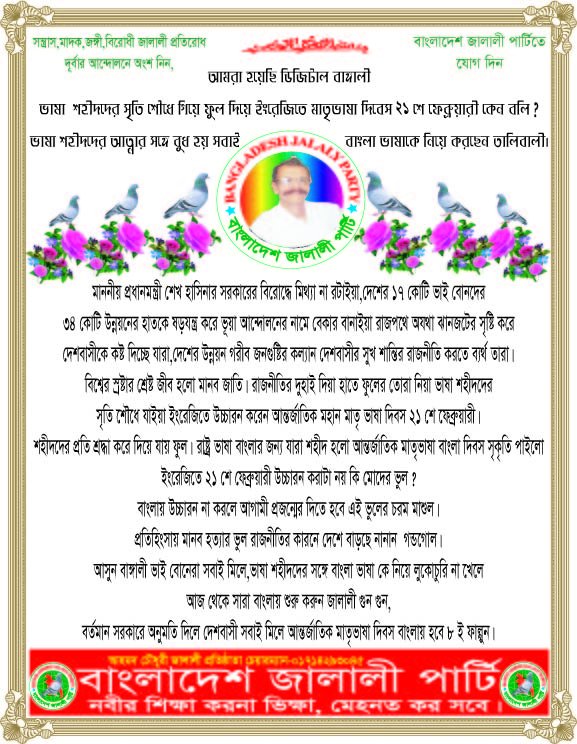 সন্ত্রাস,মাদক,জঙ্গী,বিরোধী জালালী প্রতিরোধ
দূর্বার আন্দোলনে অংশ নিন,
বাংলাদেশ জালালী পার্টিতে
যোগ দিন
আমরা হয়েছি ডিজিটাল বাঙ্গালী
ভাষা শহীদদের সৃতি শৌধে গিয়ে ফুল দিয়ে ইংরেজিতে মাতৃভাষা দিবেস ২১ শে ফেব্রুয়ারী কেন বলি ?
ভাষা শহীদদের আত্মার সঙ্গে বুধ হয় সবাই বাংলা ভাষাকে নিয়ে করছেন তালিবালী।
BANGLADESH JALALY PARTY
বাংলাদেশ জালালী পার্টি
মাননীয় প্রধানমন্ত্রী শেখ হাসিনার সরকারের বিরোধে মিথ্যা না রটাইয়া,দেশের ১৭ কোটি ভাই বোনদের
৩৪ কোটি উন্নয়নের হাতকে ষড়যন্ত্র করে ভূয়া আন্দোলনের নামে বেকার বানাইয়া রাজপথে অযথা ঝানজটের সৃষ্টি করে
দেশবাসীকে কষ্ট দিচ্ছে যারা,দেশের উন্নয়ন গরীব জনগুষ্টির কল্যান দেশবাসীর সুখ শান্তির রাজনীতি করতে ব্যর্থ তারা।
বিশ্বের স্রষ্টার শ্রেষ্ট জীব হলো মানব জাতি। রাজনীতির দুহাই দিয়া হাতে ফুলের তোরা নিয়া ভাষা শহীদদের
সৃতি শৌধে যাইয়া ইংরেজিতে উচ্চারন করেন আন্তর্জাতিক মহান মাতৃ ভাষা দিবস ২১ শে ফেব্রুয়ারী।
শহীদদের প্রতি শ্রদ্ধা করে দিয়ে যায় ফুল। রাষ্ট্র ভাষা বাংলার জন্য যারা শহীদ হলো আন্তর্জাতিক মাতৃভাষা বাংলা দিবস সৃকৃতি পাইলো
ইংরেজিতে ২১ শে ফেব্রুয়ারী উচ্চারন করাটা নয় কি মোদের ভুল ?
বাংলায় উচ্চারন না করলে আগামী প্রজন্মের দিতে হবে এই ভুলের চরম মাশুল।
প্রতিহিংসায় মানব হত্যার ভুল রাজনীতির কারনে দেশে বাড়ছে নানান গন্ডগোল।
আসুন বাঙ্গালী ভাই বোনেরা সবাই মিলে,ভাষা শহীদদের সঙ্গে বাংলা ভাষা কে নিয়ে লুকোচুরি না খেলে
আজ থেকে সারা বাংলায় শুরু করুন জালালী গুন গুন,
বর্তমান সরকারে অনুমতি দিলে দেশবাসী সবাই মিলে আন্তর্জাতিক মাতৃভাষা দিবস বাংলায় হবে ৮ ই ফাল্গুন।
চৌধুরী জালালী প্রতিষ্ঠাতা চেয়ারম্যান-০১৭১৪২৯৩০৪৫
বাংলাদেশ জালালী পার্টি
নবীর শিক্ষা করনা ভিক্ষা, মেহনত কর সবে।